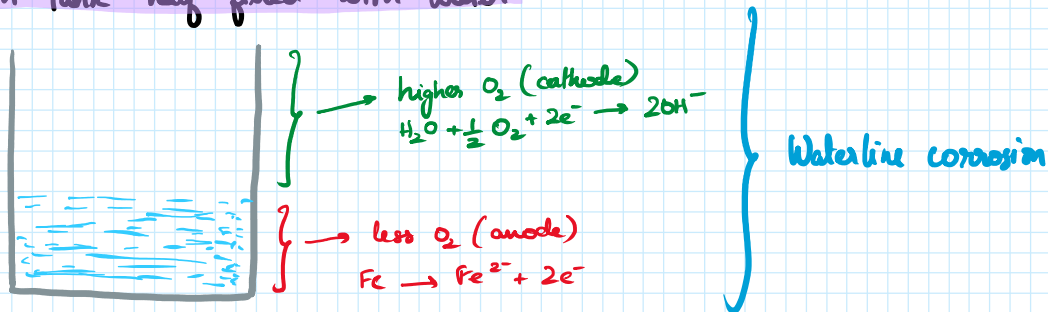 filled with water
higher O₂ (cathode)
H₂O + ½ O₂ + 2e⁻ → 2OH⁻
less O₂ (anode)
Fe → Fe²⁻ + 2e⁻
Waterline corrosion